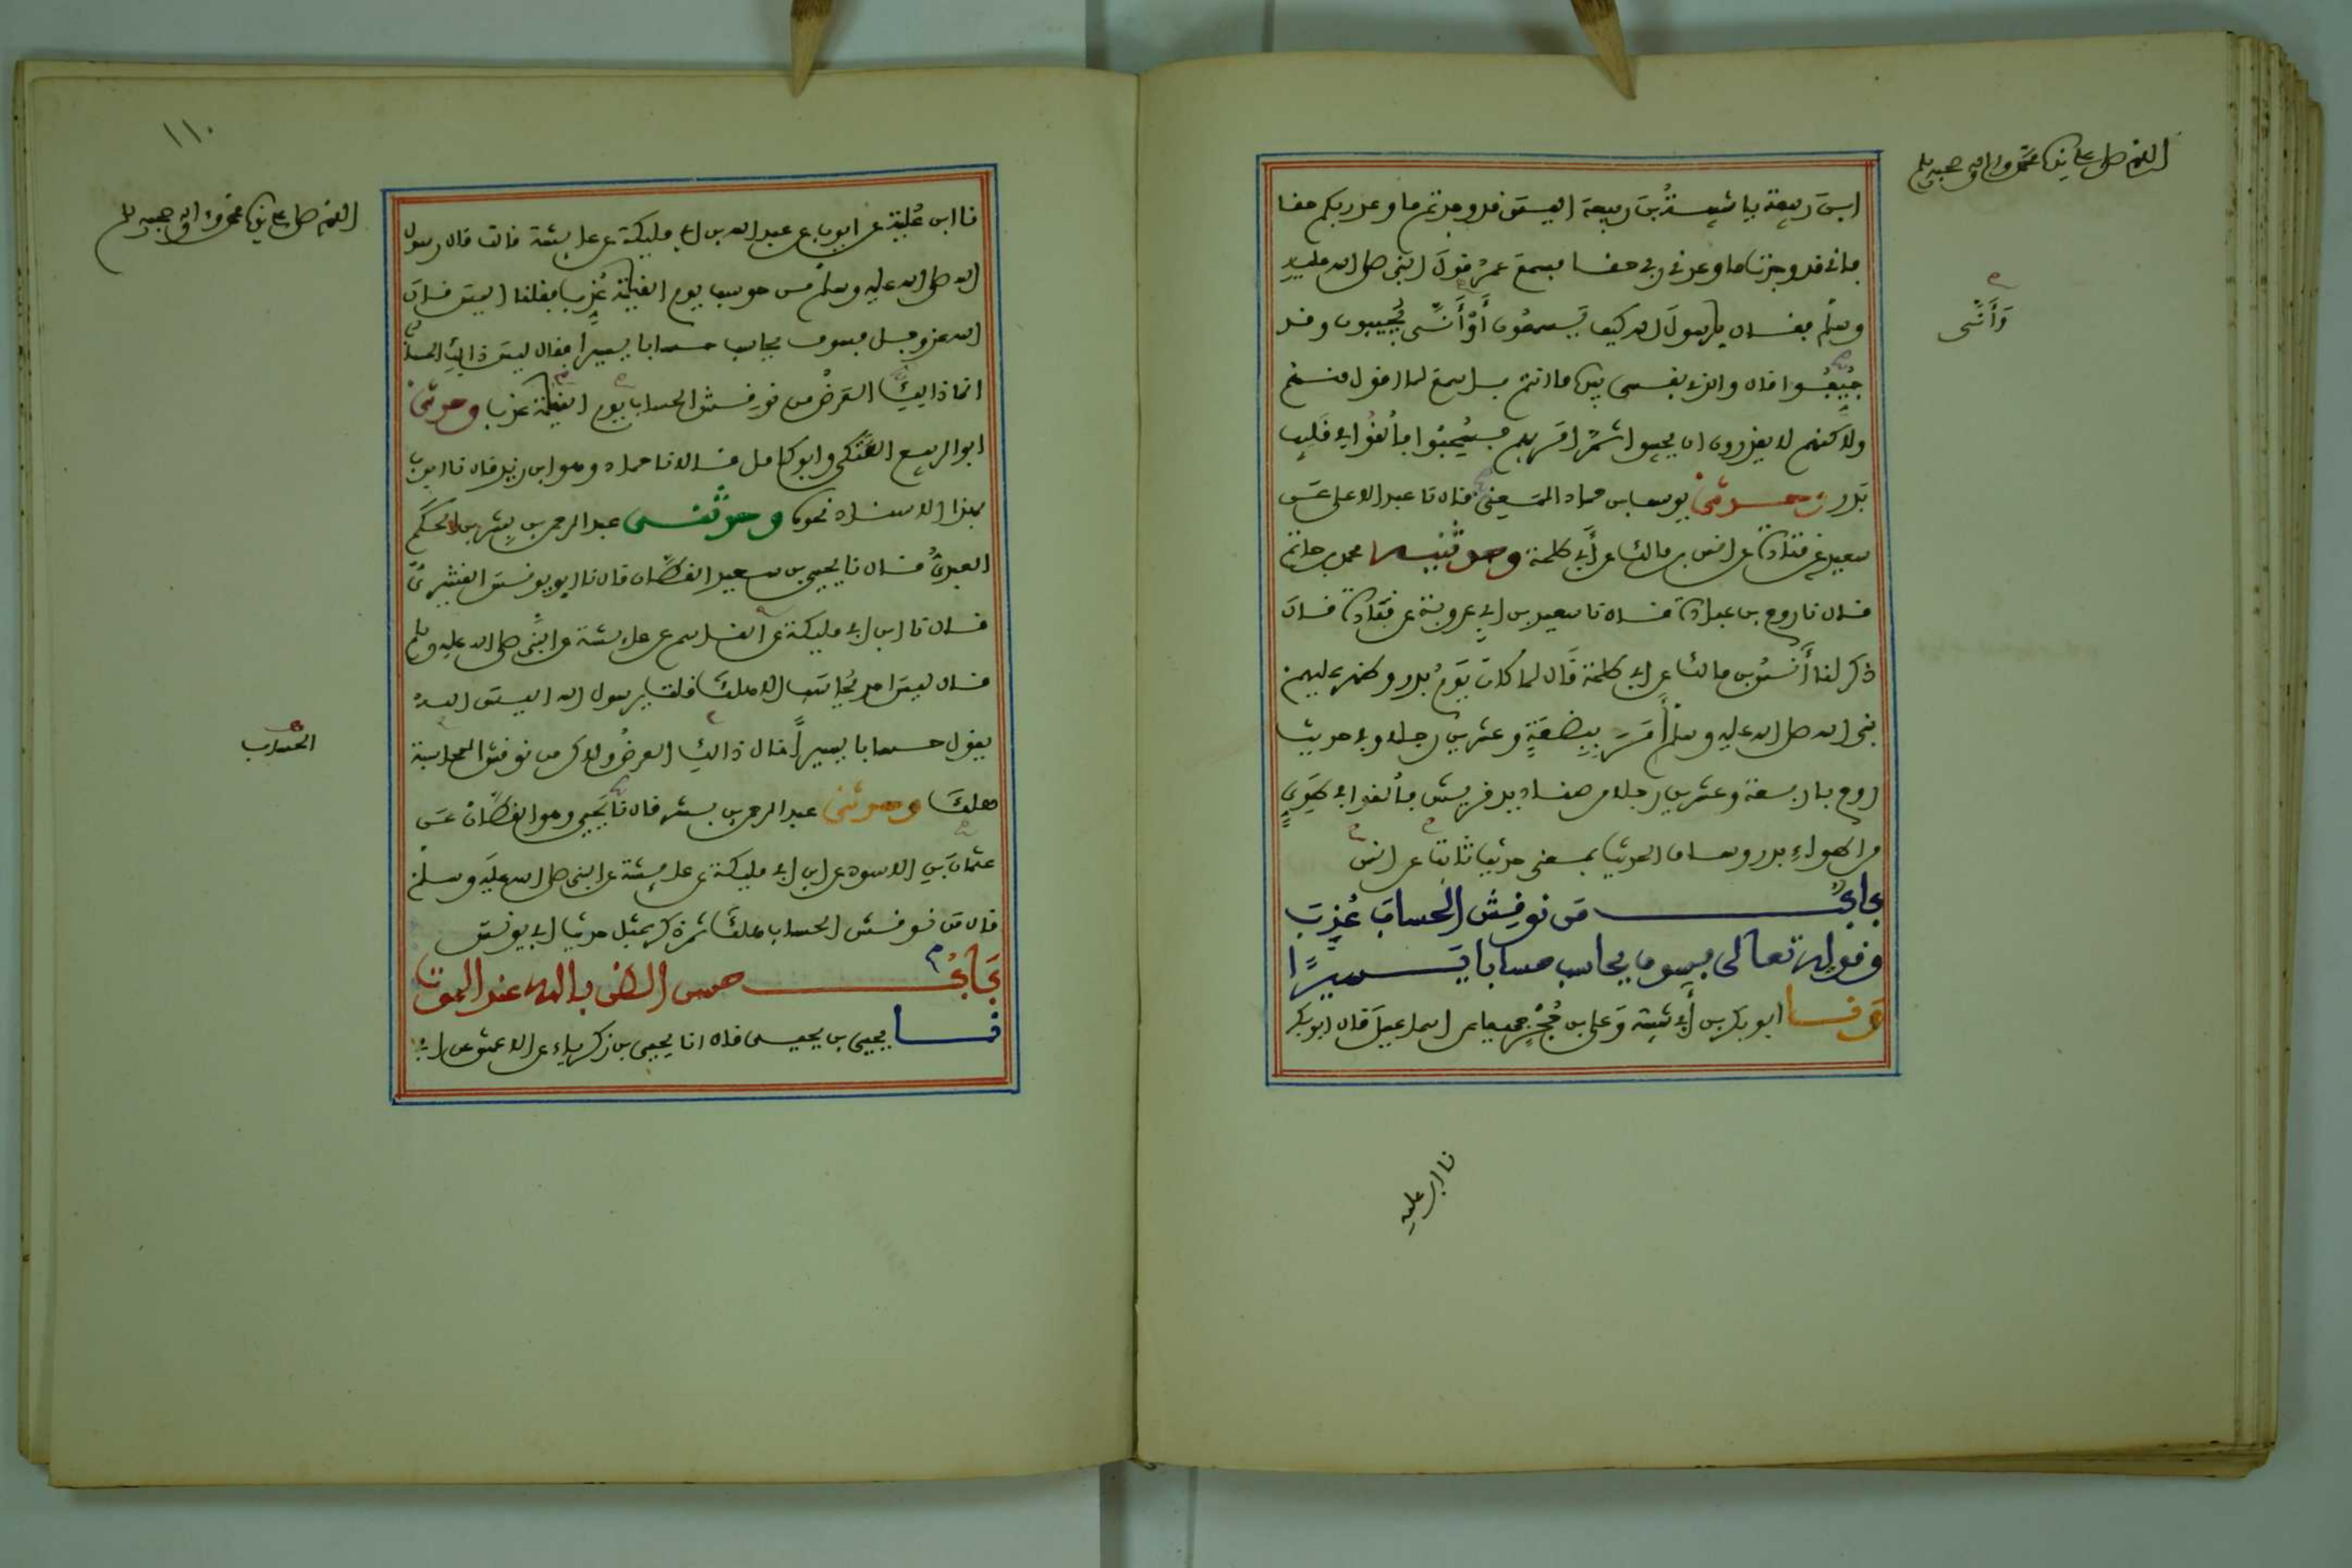 اللهم صل على سيدنا محمد وآله وصحبه وسلم
ابن ربيعة يا شيبة بن ربيعة اليس قد وجدتم ما وعد ربكم حقا
فاني قد وجدت ما وعدني ربي حقا فسمع عمر قول النبي صلى الله عليه
وسلم فقال يا رسول الله كيف يسمعون أو أنى يجيبون وقد
وَأَنَّى
جيفوا قال والذي نفسي بيده ما انتم باسمع لما اقول منهم
ولاكنهم لا يقدرون ان يجيبوا ثم امر بهم فسحبوا فألقوا في قليب
بدر وحدثني يوسف بن حماد المعني قال نا عبد الاعلى عن
سعيد عن قتادة عن انس بن مالك عن أبي طلحة وحدثنيه محمد بن حاتم
قال نا روح بن عبادة قال نا سعيد بن ابي عروبة عن قتادة قال
ذكر لنا أنس بن مالك عن ابي طلحة قال لما كان يوم بدر وظهر عليهم
نبي الله صلى الله عليه وسلم أمر ببضعة وعشرين رجلا وفي حديث
روح باربعة وعشرين رجلا من صناديد قريش فألقوا في طوي
من اطواء بدر وساق الحديث بمعنى حديث ثابت عن انس
باب من نوقش الحساب عذب
وقوله تعالى فسوف يحاسب حسابا يسيرًا
نا ابو بكر بن أبي شيبة وعلي بن حجر جميعا عن اسماعيل قال ابو بكر
نا ابن علية
١١٠
اللهم صل على سيدنا محمد وآله وصحبه وسلم
نا ابن علية عن ايوب عن عبد الله بن ابي مليكة عن عايشة قالت قال رسول
الله صلى الله عليه وسلم من حوسب يوم القيامة عذب فقلت اليس قال
الله عز وجل فسوف يحاسب حسابا يسيرا فقال ليس ذاك الحساب
انما ذاك العرض من نوقش الحساب يوم القيامة عذب وحدثني
ابو الربيع العتكي وابو كامل قالا نا حماد وهو ابن زيد قال نا ايوب
بهذا الاسناد نحوه وحدثني عبد الرحمن بن بشر بن الحكم
العبدي قال نا يحيى بن سعيد القطان قال نا ابو يونس القشيري
قال نا ابن ابي مليكة عن القاسم عن عايشة عن النبي صلى الله عليه وسلم
قال ليس احد يحاسب الا هلك قلت يا رسول الله اليس الله
يقول حسابا يسيراً قال ذاك العرض ولاكن من نوقش المحاسبة
الحساب
هلك وحدثني عبد الرحمن بن بشر قال نا يحيى وهو القطان عن
عثمان بن الاسود عن ابن ابي مليكة عن عايشة عن النبي صلى الله عليه وسلم
قال من نوقش الحساب هلك ثم ذكر بمثل حديث ابي يونس
باب حسن الظن بالله عند الموت
نا يحيى بن يحيى قال انا يحيى بن زكرياء عن الاعمش عن ابي